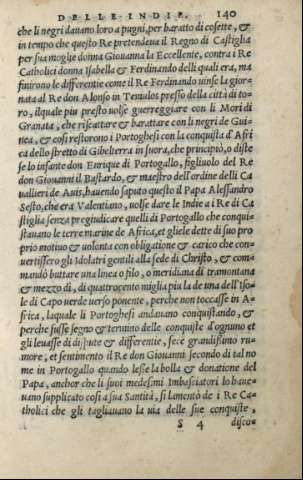 DELLE INDIE. 140
che li negri dauano loro a pugni, per baratto di cosette, &
in tempo che questo Re pretendeua il Regno di Castiglia
per sua moglie donna Giouanna la Eccellente, contra i Re
Catholici donna Isabella & Ferdinando delli quali era, ma
finirono le differentie come il Re Ferdinando uinse la gior=
nata al Re don Alonso in Temulos presso della città di to=
ro, il quale piu presto uolse guerreggiare con li Mori di
Granata, che riscattare & barattare con li negri de Gui=
nea, & cosi restorono i Portoghesi con la conquista d'Afri
ca dello stretto di Gibelterra in fuora, che principiò, o diste
se lo infante don Enrique di Portogallo, figliuolo del Re
don Giouanni il Bastardo, & maestro dell'ordine delli Ca
uallieri de Auis, hauendo saputo questo il Papa Alessandro
Sesto, che era Valentiano, uolse dare le Indie a i Re di Ca
stiglia senza pregiudicare quelli di Portogallo che conqui=
stauano le terre marine de Africa, et gliele dette di suo pro
prio motiuo & uolonta con obligatione & carico che con=
uertissero gli Idolatri gentili alla fede di Christo, & com=
mandò buttare una linea o filo, o meridiana di tramontana
& mezzo di, di quattrocento miglia piu la de una dell'Iso=
le di Capo uerde uerso ponente, perche non toccasse in A=
frica, laquale li Portoghesi andauano conquistando, &
perche fusse segno & termino delle conquiste d'ognuno et
gli leuasse di dispute & differentie, fece grandissimo ru=
more, et sentimento il Re don Giouanni secondo di tal no
me in Portogallo quando lesse la bolla & donatione del
Papa, anchor che li suoi medesmi Imbasciatori lo haue=
uano supplicato cosi a sua Santità, si lamentò de i Re Ca=
tholici che gli tagliauano la uia delle sue conquiste,
S 4 disco=